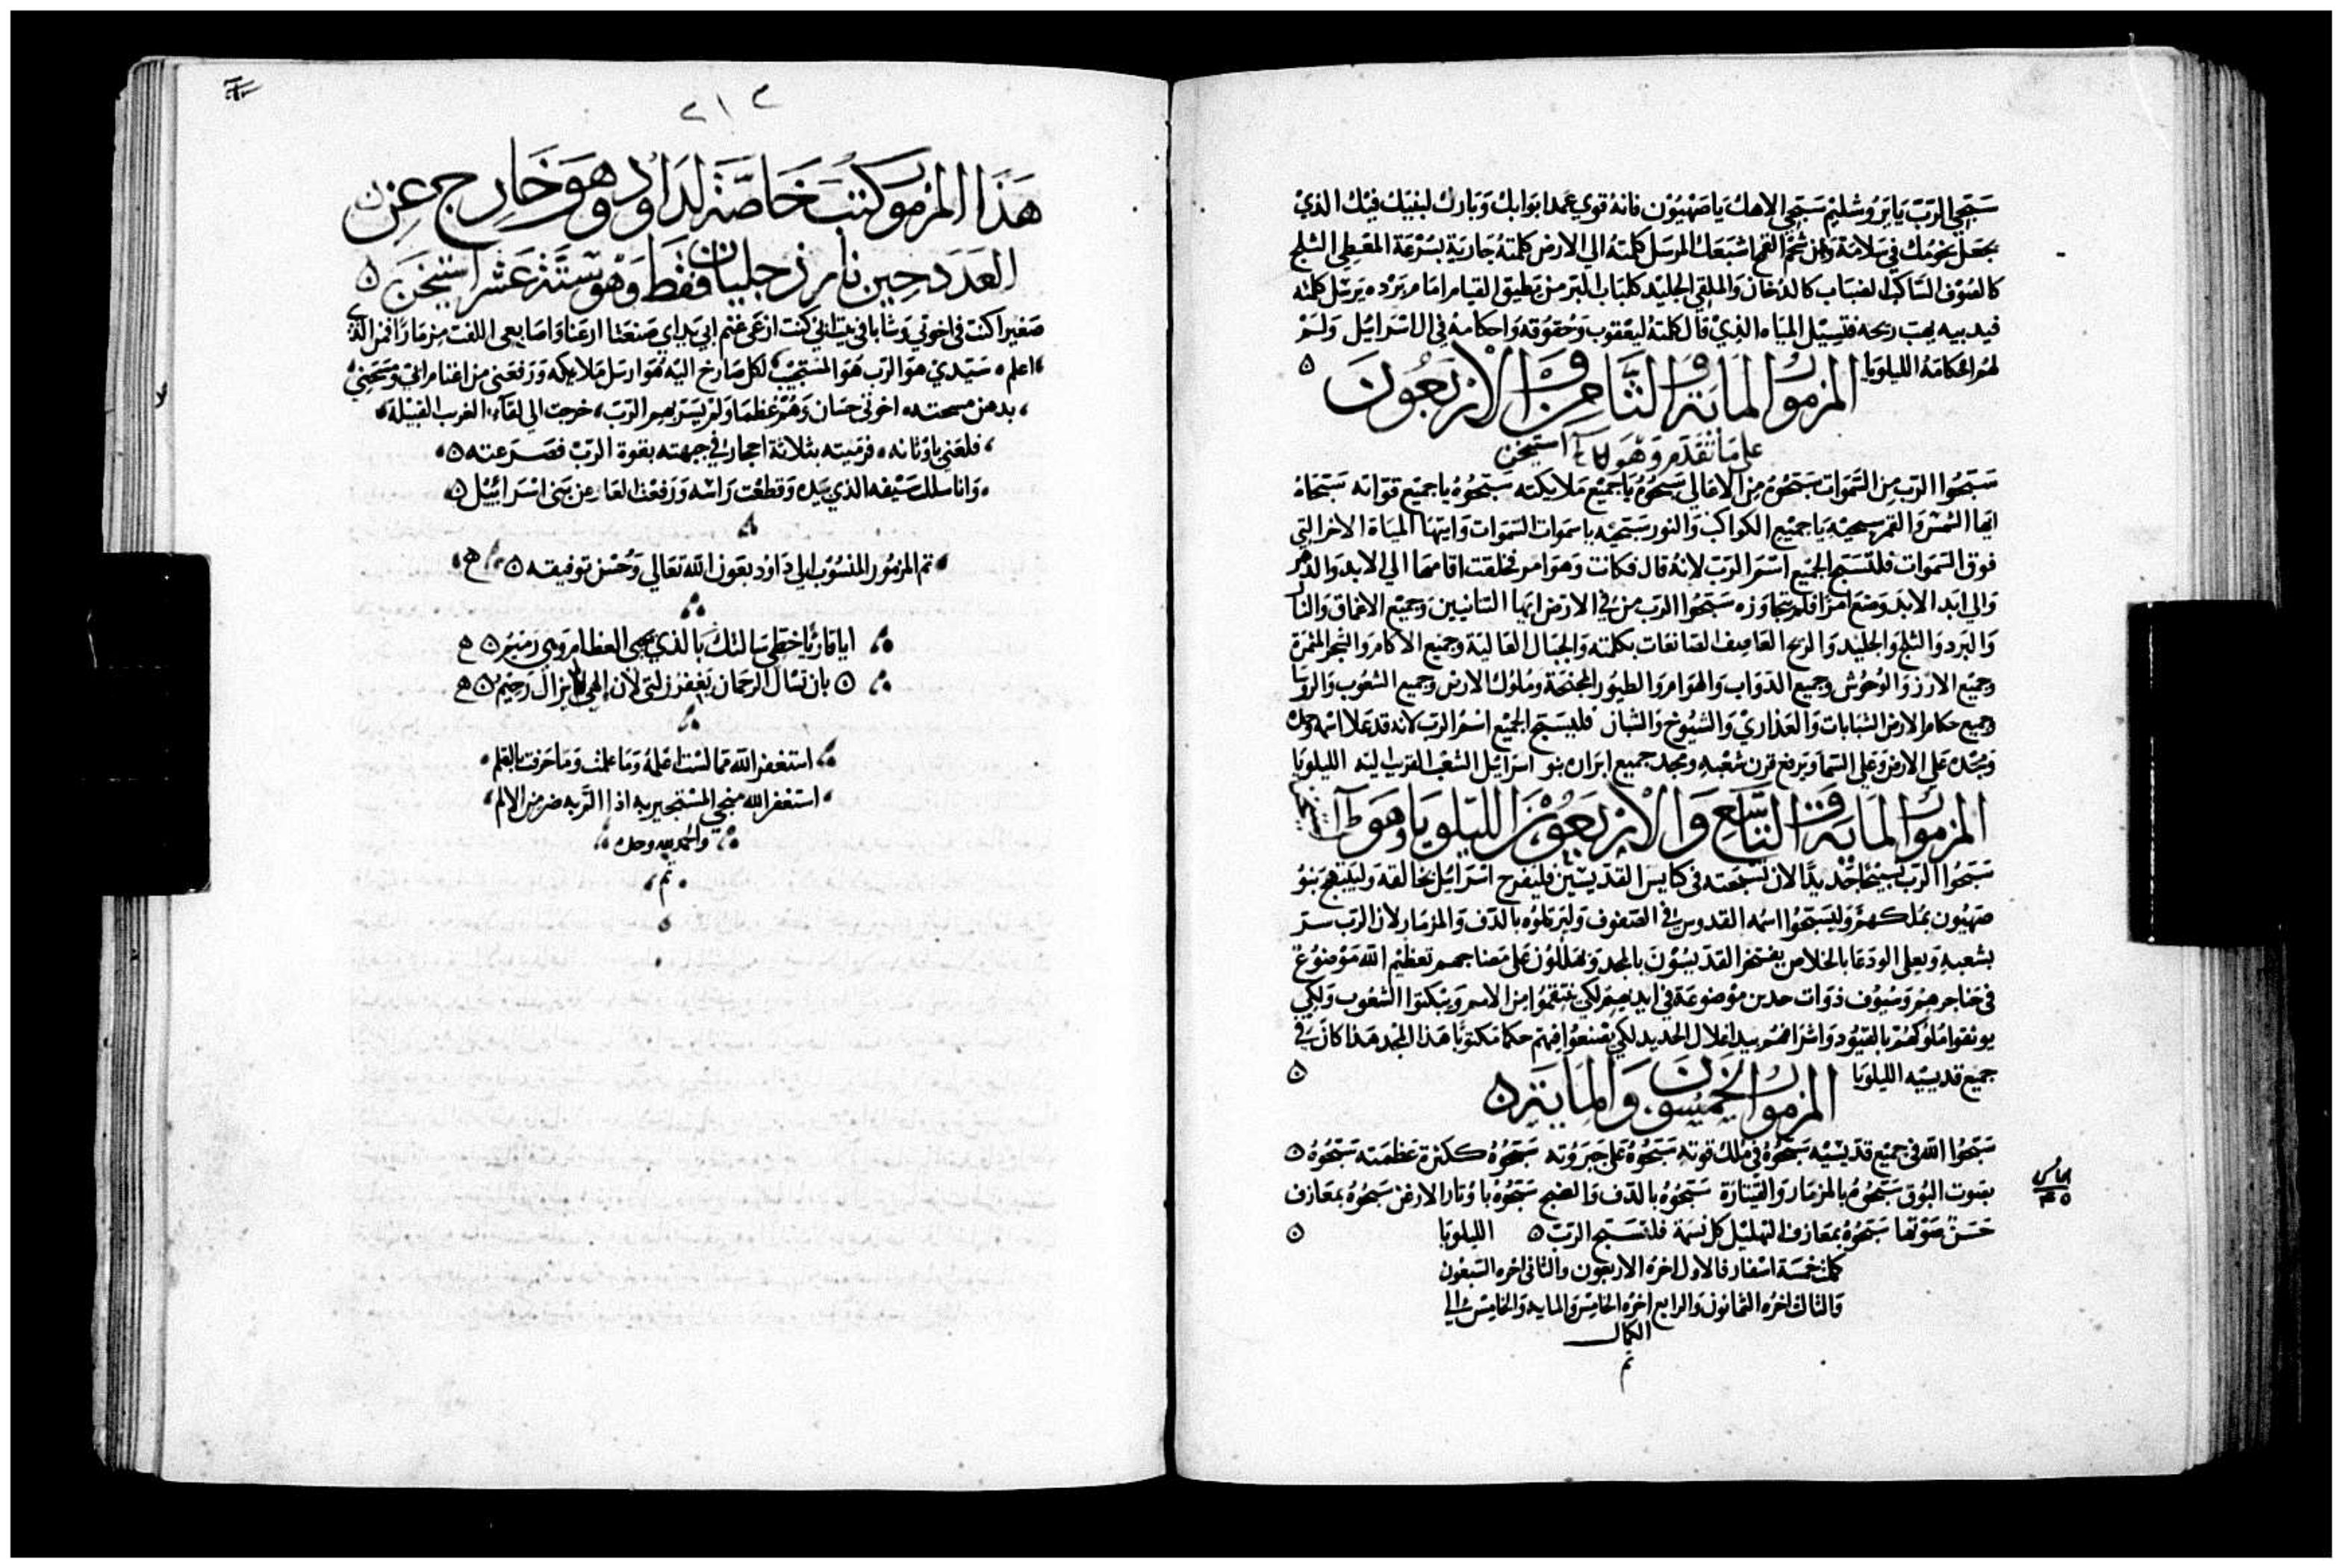 سبحي الرب يا يروشليم سبحي الاهك يا صهيون فانه قوي عمد ابوابك وبارك لبنيك فيك الذي
يجعل تخومك في سلامة ومن شحم القمح اشبعك المرسل كلمته الي الارض كلمته جارية بسرعة المعطي الثلج
كالصوف الساكب الضباب كالدخان والملقي الجليد كلباب البر من يطيق القيام امام برده يرسل كلمته
فيذيبه يهب ريحه فتسيل المياه الذي قال كلمته ليعقوب وحقوقه واحكامه في ال اسرائيل ولم
لهم احكامه الليلويا
المزمور الماية والثامن والاربعون
على ما تقدم وهو استيخن
سبحوا الرب من السموات سبحوه من الاعالي سبحوه يا جميع ملايكته سبحوه يا جميع قواته سبحاه
ايها الشمس والقمر سبحيه يا جميع الكواكب والنور سبحيه يا سموات السموات وايتها المياه الاخر التي
فوق السموات فلتسبح الجميع اسم الرب لانه قال فكانت وهو امر فخلقت اقامها الي الابد والدهر
والي ابد الابد وضع امرا فلم تتجاوزه سبحوا الرب من في الارض ايها التنانيين وجميع الاعماق والنار
والبرد والثلج والجليد والريح العاصف الصانعات بكلمته والجبال العالية وجميع الاكام والشجر المثمرة
وجميع الارز والوحوش وجميع الدواب والهوام والطيور المجنحة وملوك الارض وجميع الشعوب والروسا
وجميع حكام الارض الشبابات والعذاري والشيوخ والشبان فليسبح الجميع اسم الرب لانه قد علا اسمه وحده
ومجده على الارض وعلى السما ويرفع قرن شعبه ومجد جميع ابراره بنو اسرائيل الشعب القريب ليه الليلويا
المزمور الماية والتاسع والاربعون الليلويا وهو
سبحوا الرب تسبيحا جديدا لان تسبحته في كنايس القديسين فليفرح اسرائيل بخالقه وليبتهج بنو
صهيون بملكهم وليسبحوا اسمه القدوس في الصفوف وليرتلوه بالدف والمزمار لان الرب سر
بشعبه ويعلي الودعا بالخلاص يفتخر القديسون بالمجد ويهللون على مضاجعهم تعظيم الله موضوع
في حناجرهم وسيوف ذوات حدين موضوعة في ايديهم لكي ينتقموا من الامم ويبكتوا الشعوب ولكي
يوثقوا ملوكهم بالقيود واشرافهم بيد اغلال الحديد لكي يصنعوا فيهم حكما مكتوبا هذا المجد هذا كان في
جميع قديسيه الليلويا
المزمور الخمسون والماية
سبحوا الله في جميع قديسيه سبحوه في ملك قوته سبحوه على جبروته سبحوه ككثرة عظمته سبحوه
بصوت البوق سبحوه بالمزمار والقيتارة سبحوه بالدف والصنج سبحوه باوتار الارغن سبحوه بمعازف
حسن صوتها سبحوه بمعازف التهليل كل نسمة فلتسبح الرب الليلويا
كملت خمسة اسفار فالاول اخره الاربعون والثاني اخره السبعون
والثالث اخره الثمانون والرابع اخره الخامس والمايه والخامس الي
الكمال
تم
٢١٣
هذا المزمور كتب خاصة لداوود وهو خارج عن
العدد حين بارز جليان فقط وهو ستة عشر استيخن
صغيرا كنت في اخوتي وشابا في بيت ابي كنت ارعى غنم ابي يداي صنعتا ارغنا واصابعي الفت مزمارا فمن الذي
اعلم سيدي هو الرب هو المستجيب لكل صارخ اليه هو ارسل ملايكه ورفعني من اغنام ابي ومسحني
بدهن مسحته اخوتي حسان وهم عظما ولم يسر بهم الرب خرجت الي لقاء الغرب القبيلة
فلعني باوثانه فرميته بثلاثة احجار في جبهته بقوة الرب فصرعته
وانا سللت سيفه الذي بيده وقطعت راسه ورفعت العار عن بني اسرائيل
تم المزمور المنسوب الي داود بعون الله تعالي وحسن توفيقه
ايا قاريا خطي سالتك بالذي يحيي العظام وهي رميم
بان تسال الرحمان يغفر زلتي لان الهي لم يزال رحيم
استغفر الله مما لست اعلمه وما علمت وما حرفت بالقلم
استغفر الله منجي المستجير به اذا الم به ضر من الالم
والحمد لله وحده
تم